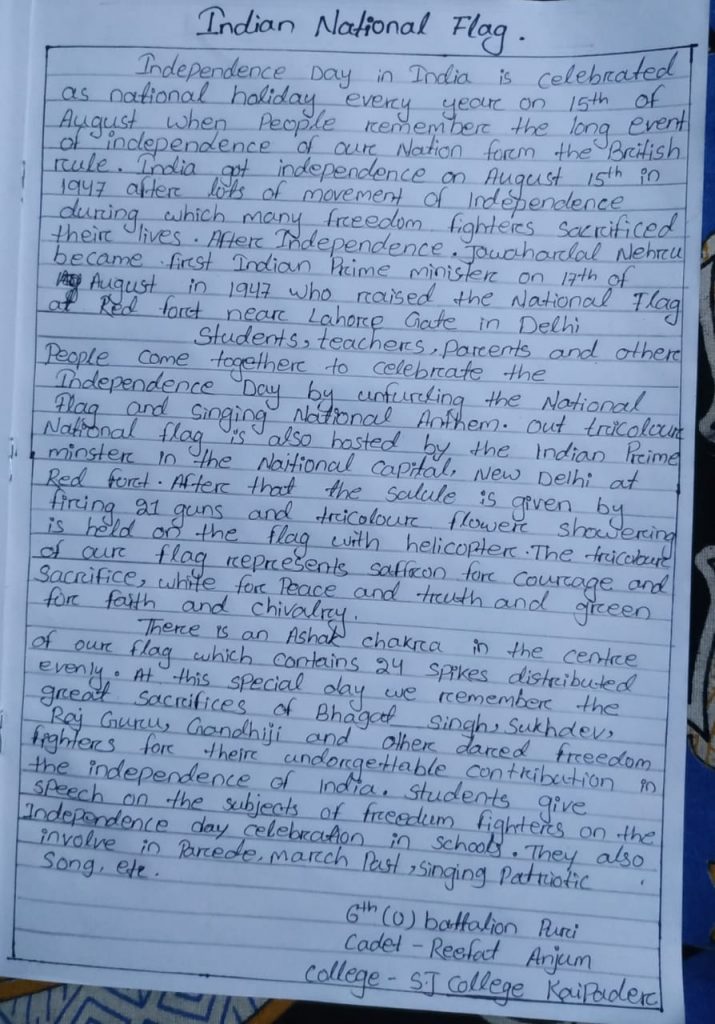 Indian National Flag.
Independence Day in India is celebrated
as national holiday every year on 15th of
August when People remember the long event
of independence of our Nation form the British
rule. India got independence on August 15th in
1947 after lots of movement of Independence
during which many freedom fighters sacrificed
their lives. After Independence. Jawaharlal Nehru
became first Indian Prime minister on 17th of
August in 1947 who raised the National Flag
at Red fort near Lahore Gate in Delhi
Students, teachers, parents and other
People come together to celebrate the
Independence Day by unfurling the National
Flag and singing National Anthem. out tricolour
National flag is also hosted by the Indian Prime
minster in the Naitional capital, New Delhi at
Red fort. After that the salule is given by
firing 21 guns and tricolour flower showering
is held on the flag with helicopter. The tricolour
of our flag represents saffron for courage and
Sacrifice, white for Peace and truth and green
for faith and chivalry.
There is an Ashok chakra in the centre
of our flag which contains 24 spikes distributed
evenly. At this special day we remember the
great sacrifices of Bhagat singh, Sukhdev,
Raj Guru, Gandhiji and other dared freedom
fighters for their undorgettable contribution in
the independence of India. Students give
speech on the subjects of freedum fighters on the
Independence day celebration in schools. They also
involve in Parede, march Past, singing Patriotic
Song, etc.
6th (0) battalion Puri
Cadet - Reefat Anjum
College - SJ College Kaipader